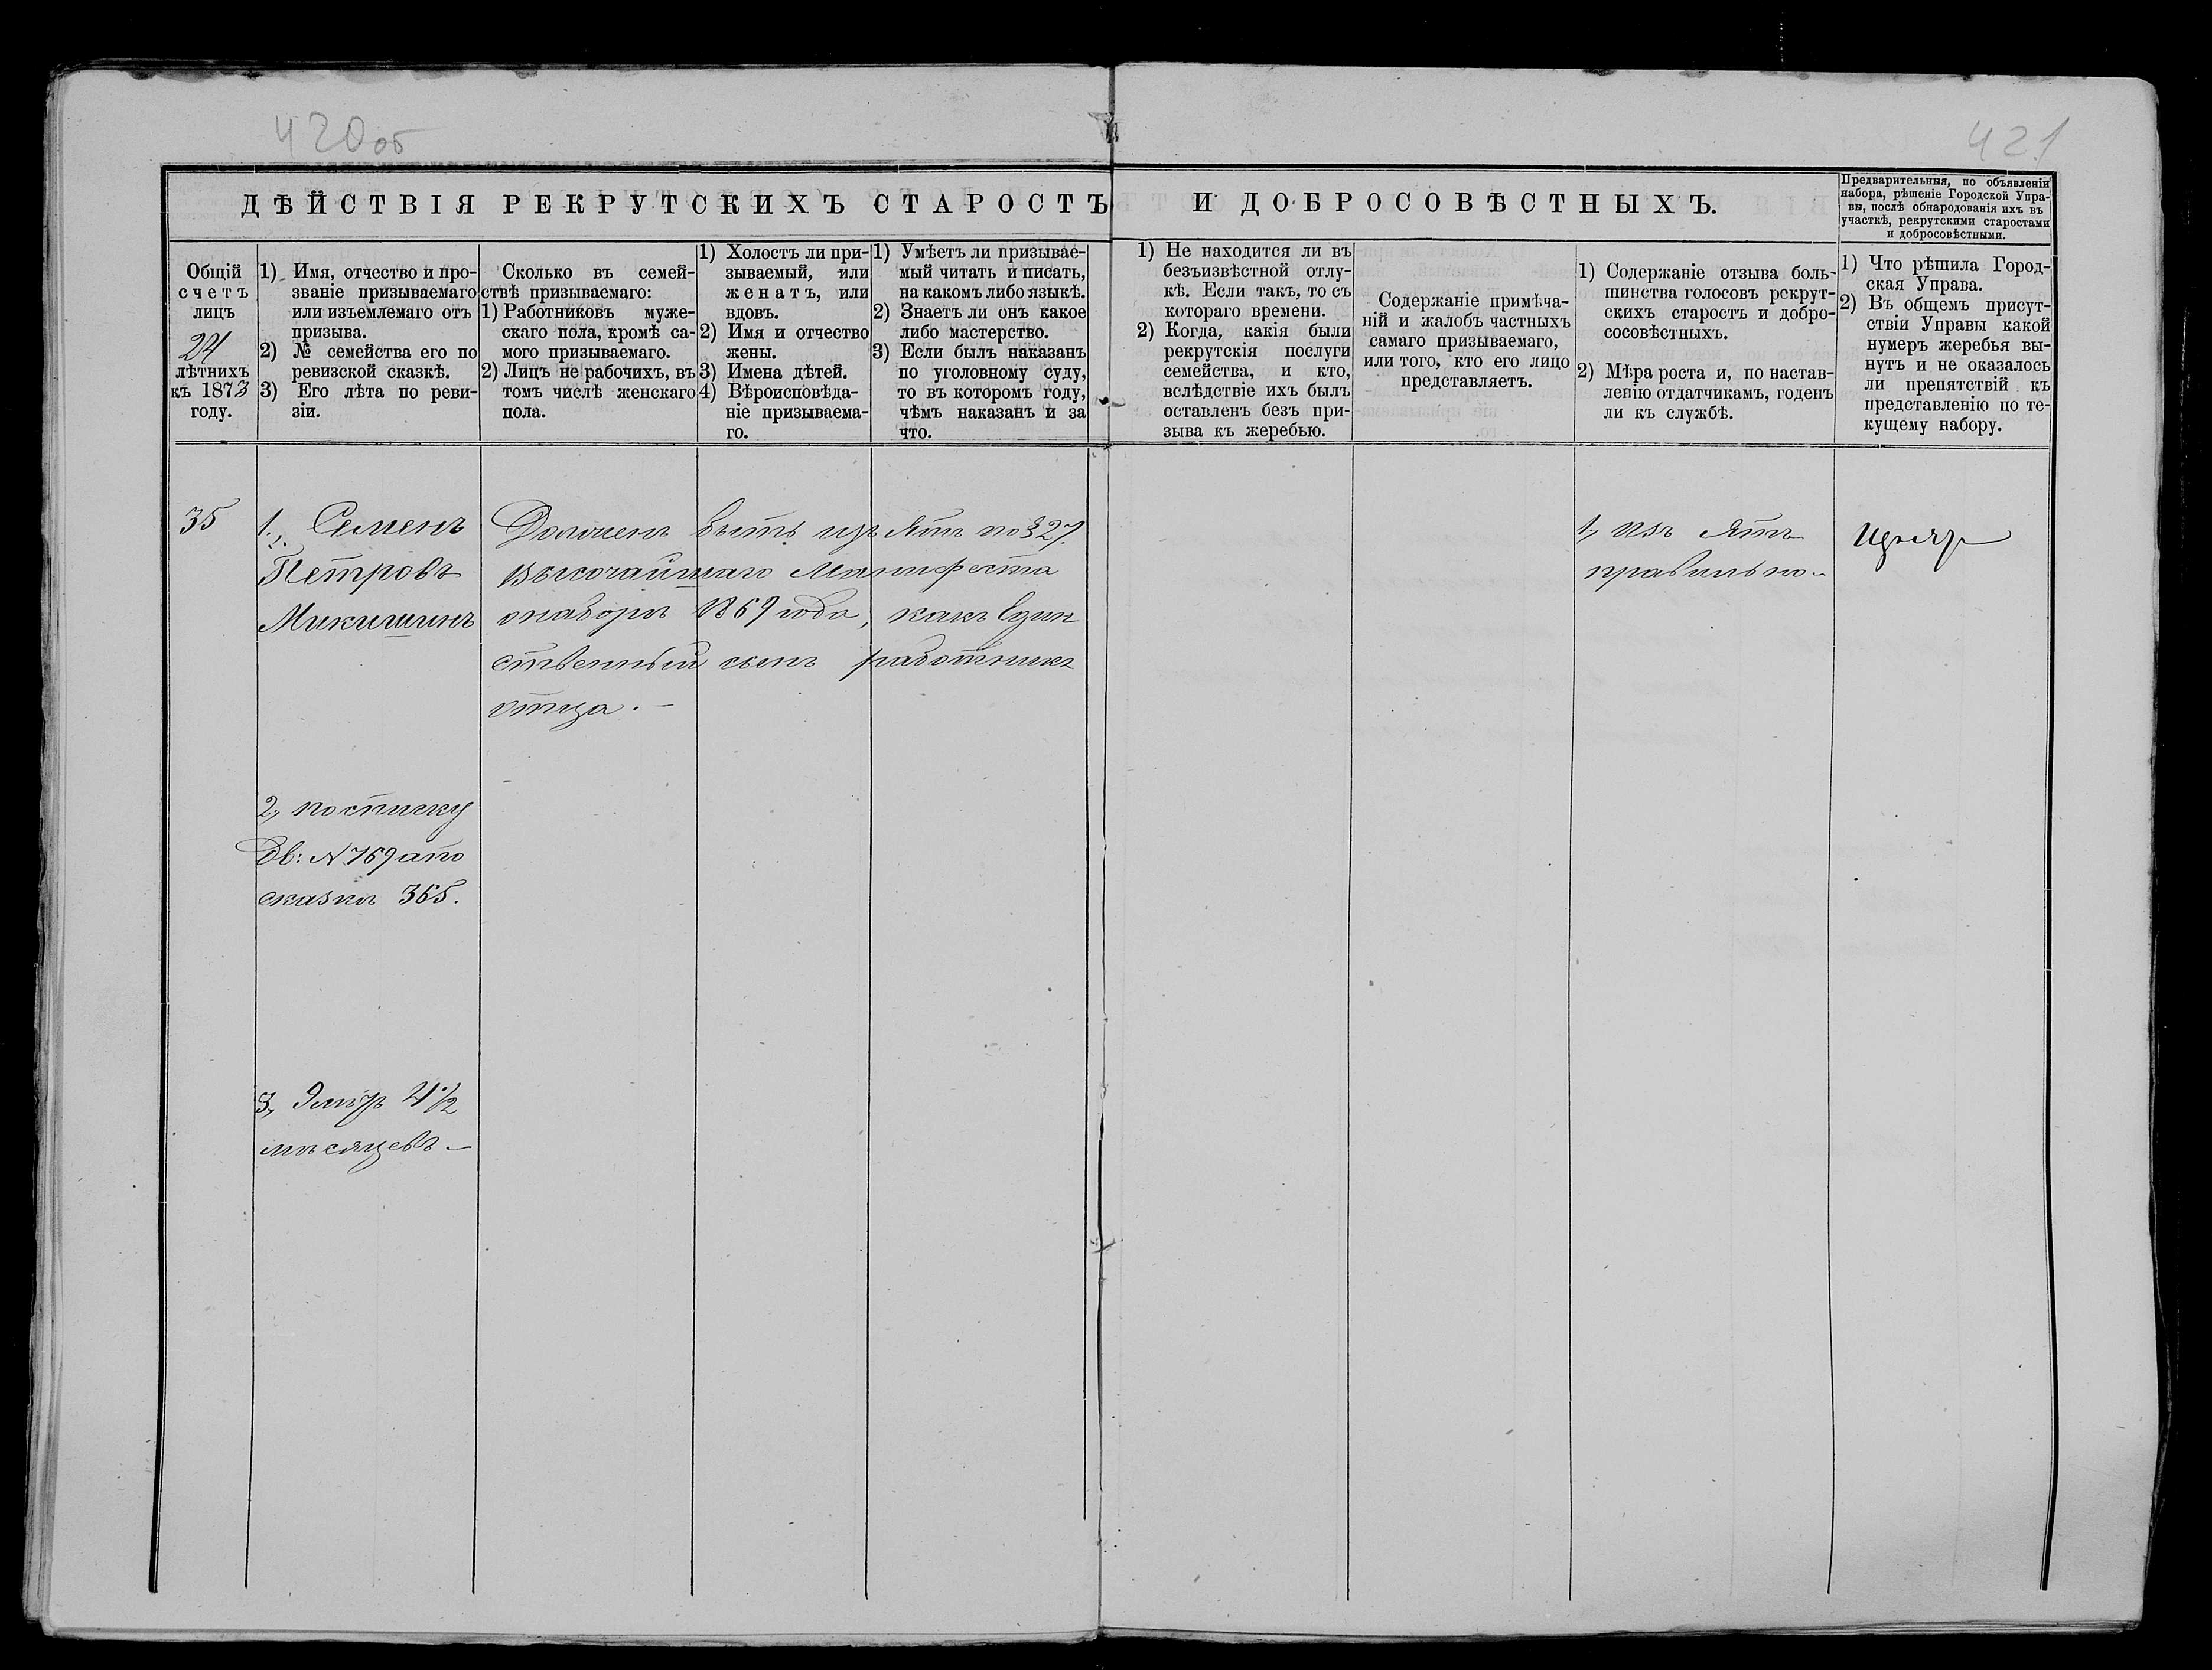 420об
421
ДѢЙСТВІЯ РЕКРУТСКИХЪ СТАРОСТЪ И ДОБРОСОВѢСТНЫХЪ.
Предварительныя, по объявленіи
набора, рѣшеніе Городской Упра-
вы, послѣ обнародованія ихъ въ
участкѣ, рекрутскими старостами
и добросовѣстными.
Общій
счетъ
лицъ
21
лѣтнихъ
къ 1873
году.
1) Имя, отчество и про-
званіе призываемаго
или изъемлемаго отъ
призыва.
2) № семейства его по
ревизской сказкѣ.
3) Его лѣта по реви-
зіи.
Сколько въ семей-
ствѣ призываемаго:
1) Работниковъ муже-
скаго пола, кромѣ са-
мого призываемаго.
2) Лицъ не рабочихъ, въ
томъ числѣ женскаго
пола.
1) Холостъ ли при-
зываемый, или
женатъ, или
вдовъ.
2) Имя и отчество
жены.
3) Имена дѣтей.
4) Вѣроисповѣда-
ніе призываема-
го.
1) Умѣетъ ли призывае-
мый читать и писать,
на какомъ либо языкѣ.
2) Знаетъ ли онъ какое
либо мастерство.
3) Если былъ наказанъ
по уголовному суду,
то въ которомъ году,
чѣмъ наказанъ и за
что.
1) Не находится ли въ
безъизвѣстной отлу-
кѣ. Если такъ, то съ
котораго времени.
2) Когда, какія были
рекрутскія послуги
семейства, и кто,
вслѣдствіе ихъ былъ
оставленъ безъ при-
зыва къ жеребью.
Содержаніе примѣча-
ній и жалобъ частныхъ
самаго призываемаго,
или того, кто его лицо
представляетъ.
1) Содержаніе отзыва боль-
шинства голосовъ рекрут-
скихъ старостъ и добро-
сосовѣстныхъ.
2) Мѣра роста и, по настав-
ленію отдатчикамъ, годенъ
ли къ службѣ.
1) Что рѣшила Город-
ская Управа.
2) Въ общемъ присут-
ствіи Управы какой
нумеръ жеребья вы-
нутъ и не оказалось
ли препятствій къ
представленію по те-
кущему набору.
35
1., Семенъ
Петровъ
Микишинъ
2., по списку
Дв: N 769 а по
сказкѣ 365.
3.,
мѣсяцевъ.—
Долженъ быть изъ Ятъ по § 27.
Высочайшаго Манифеста
о наборѣ 1869 года, какъ Един
ственный сынъ работникъ
отца.—
1., Изъ Ятъ
правильно.—